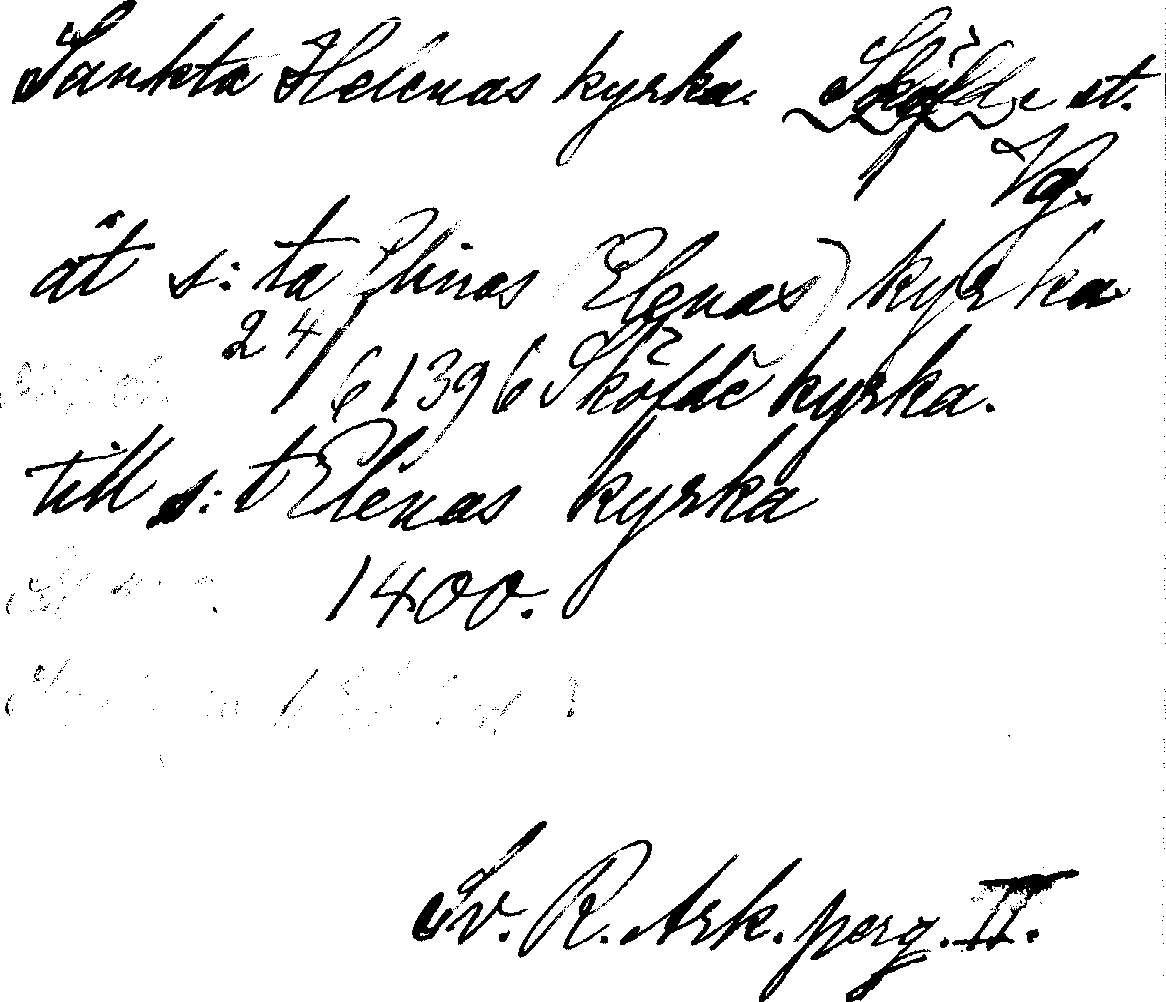 Sankta Helenas kyrka. Sköfde st.
Vg.
åt s:ta Elinas (Elenas) kyrka
24/6 1396 Sköfde kyrka.
till s:t Elenas kyrka
1400.
Sv. R. Ark. perg. II.